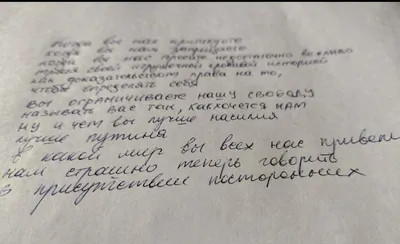 Когда вы нас критикуете
когда вы нам запрещаете
когда вы нас просите недостаточно вежливо
тряся своей игрушечной кровавой историей
как доказательством права на то,
чтобы определять себя
вы ограничиваете нашу свободу
называть вас так, как хочется нам
ну и чем вы лучше насилия
лучше путина
в какой мир вы всех нас привели
нам страшно теперь говорить
в присутствии посторонних